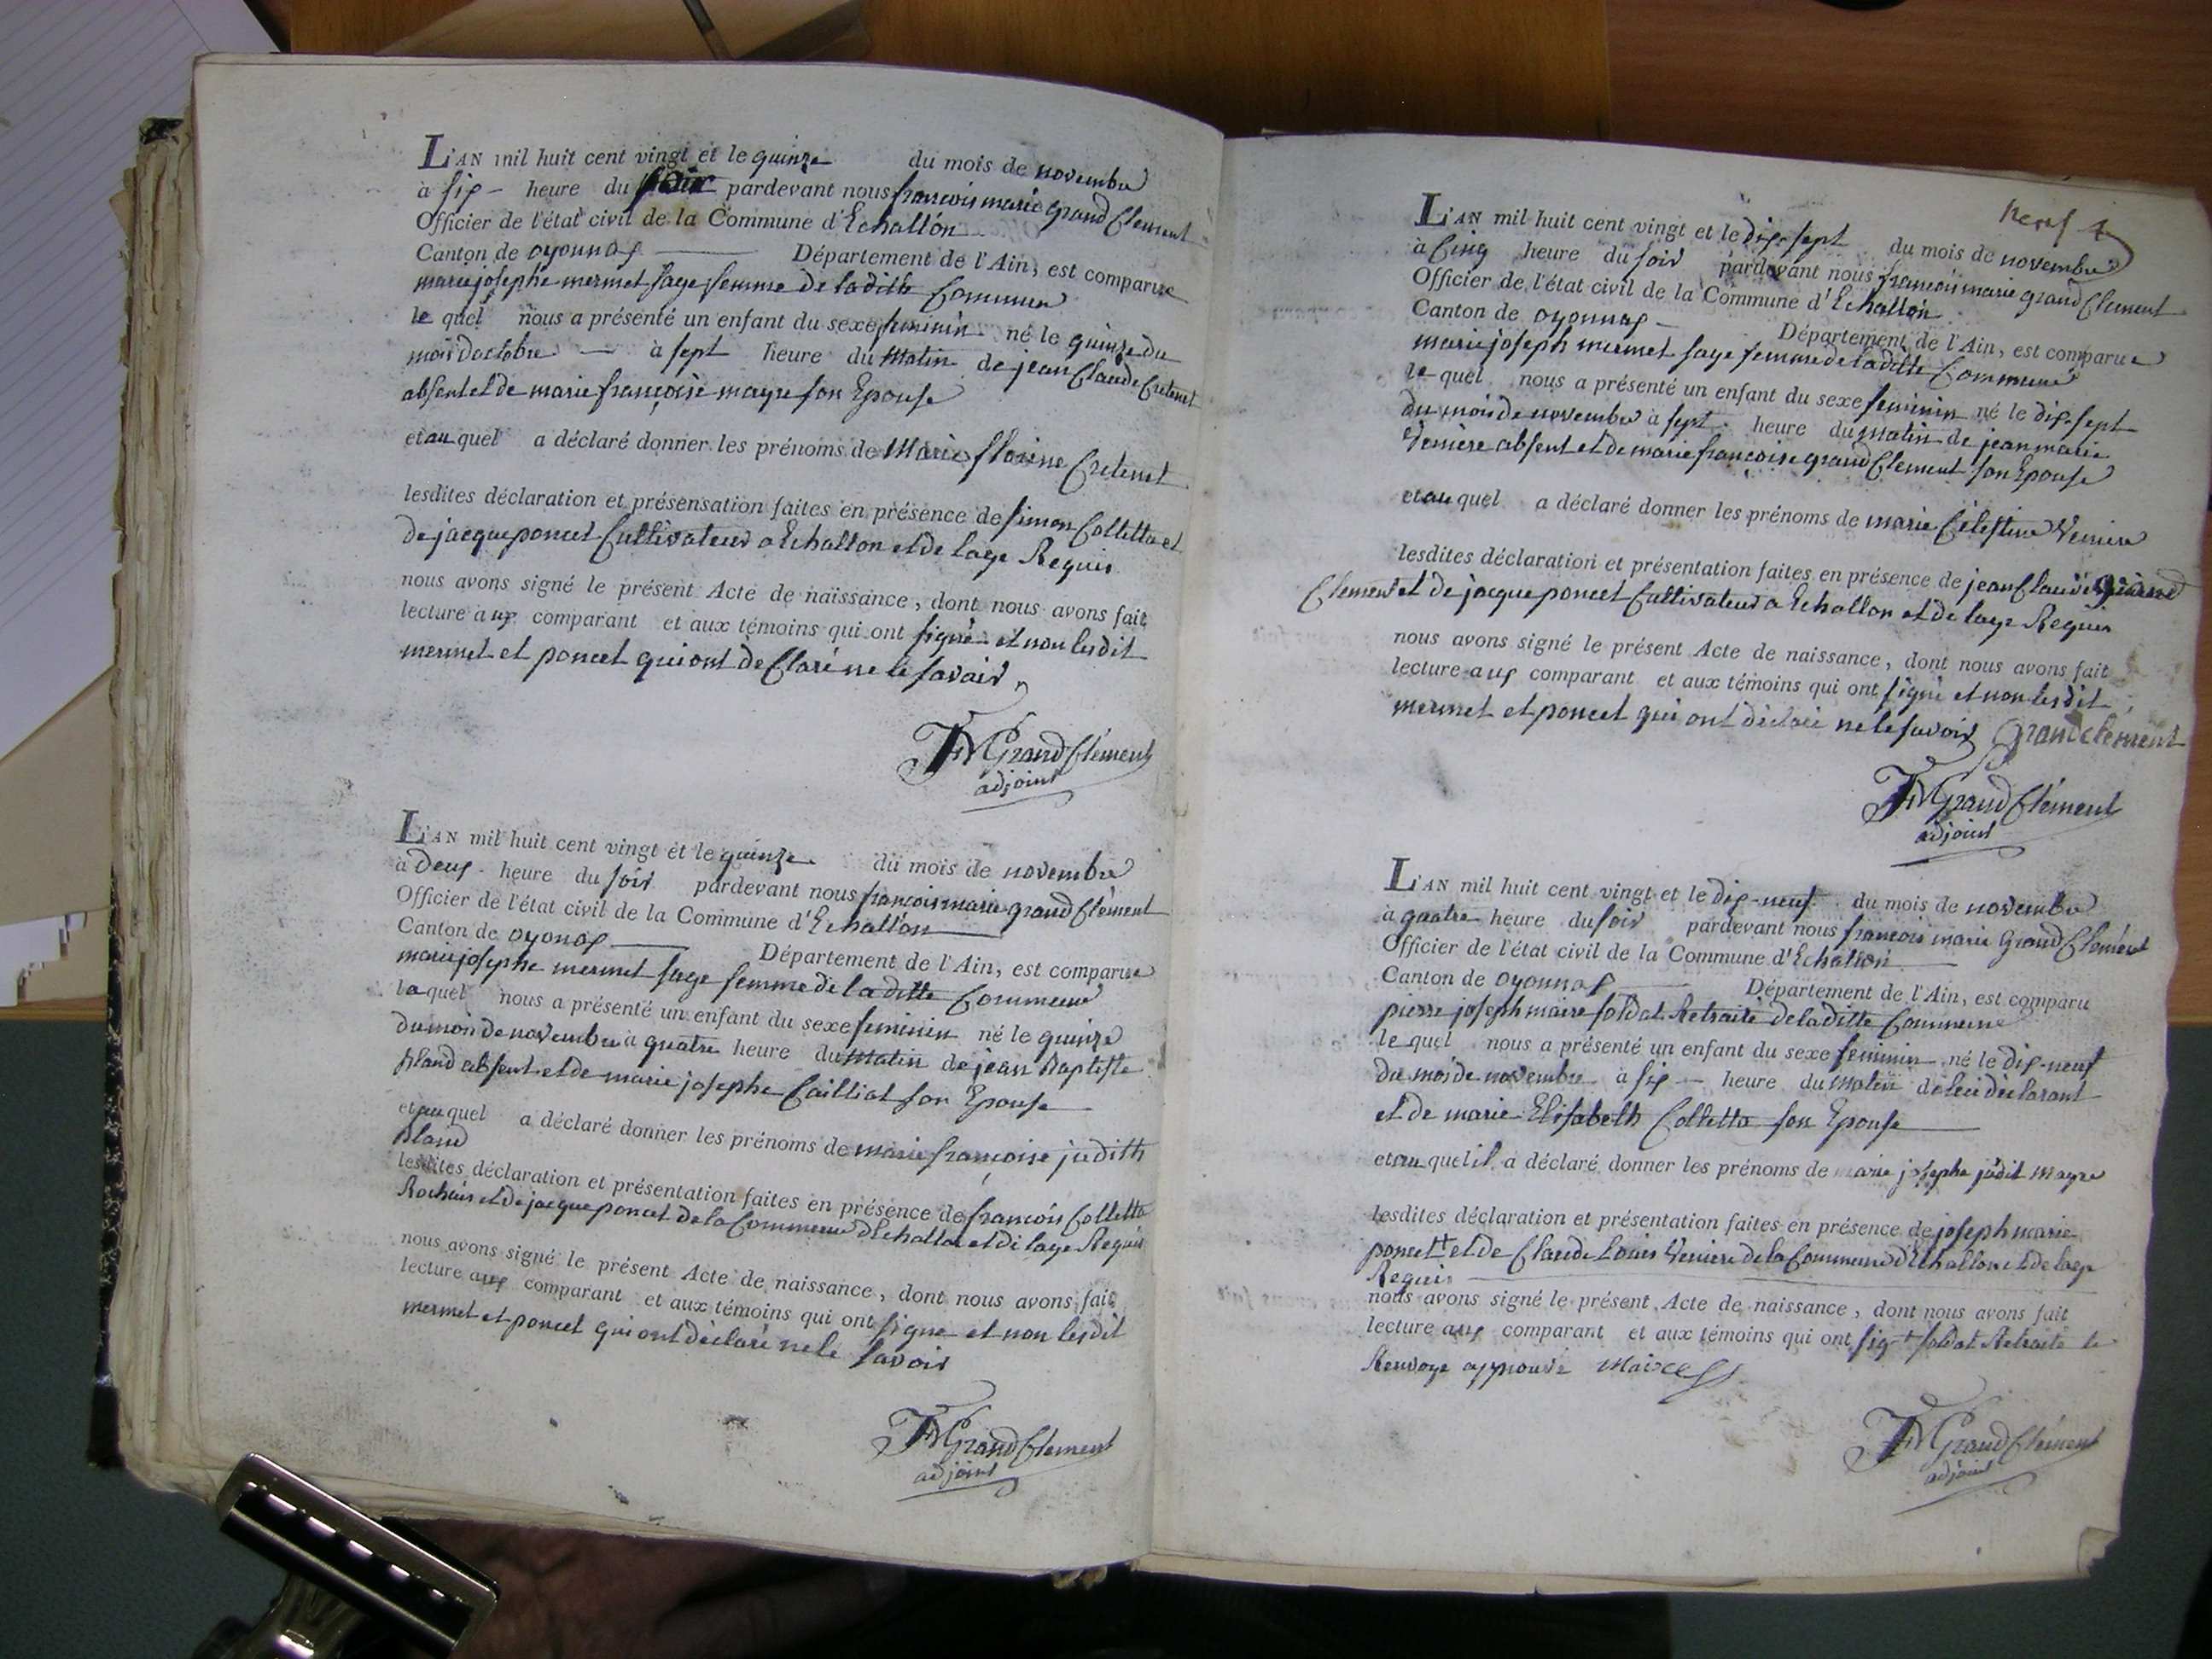 L'AN mil huit cent vingt et le quinze du mois de novembre
à six heure du soir pardevant nous françois marie grand Clement
Officier de l'état civil de la Commune d'Echallon
Canton de oyonnax Département de l'Ain, est comparue
marie josephe mermet sage femme de laditte Commune
le quel nous a présenté un enfant du sexe feminin né le quinze du
mois doctobre à sept heure du matin de jean Claude Cretenet
absent et de marie françoise mayre son Epouse
et au quel a déclaré donner les prénoms de Marie florine Cretenet
lesdites déclaration et présensation faites en présence de simon Colletta et
de jacque poncet Cultivateur a Echallon et de lage Requis
nous avons signé le présent Acte de naissance, dont nous avons fait
lecture aux comparant et aux témoins qui ont signé et non lesdit
mermet et poncet qui ont déClaré ne le savoir
FMGrandClément
adjoint
L'AN mil huit cent vingt et le quinze du mois de novembre
à Deux heure du soir pardevant nous françois marie grand Clément
Officier de l'état civil de la Commune d'Echallon
Canton de oyonax Département de l'Ain, est comparue
marie josephe mermet sage femme de laditte Commune
la quel nous a présenté un enfant du sexe feminin né le quinze
du mois de novembre à quatre heure du matin de jean Baptiste
pland absent et de marie josephe Cailliat son Epouse
et au quel a déclaré donner les prénoms de marie françoise judith
pland
lesdites déclaration et présentation faites en présence de françois Colletta
Rochais et de jacque poncet de la Commune dEchallon et de lage Requis
nous avons signé le présent Acte de naissance, dont nous avons fait
lecture aux comparant et aux témoins qui ont signe et non lesdit
mermet et poncet qui ont déclaré ne le savoir
FMGrandClement
adjoint
neuf
L'AN mil huit cent vingt et le dix sept du mois de novembre
à Cinq heure du soir pardevant nous françois marie grand Clement
Officier de l'état civil de la Commune d'Echallon
Canton de oyonnax Département de l'Ain, est comparue
marie joseph mermet sage femme de laditte Commune
le quel nous a présenté un enfant du sexe feminin né le dix sept
du mois de novembre à sept heure du matin de jean marie
Veniere absent et de marie françoise grand Clement son Epouse
et au quel a déclaré donner les prénoms de marie Célestine Veniere
lesdites déclaration et présentation faites en présence de jean Claude grand
Clement et de jacque poncet Cultivateur a Echallon et de lage Requis
nous avons signé le présent Acte de naissance, dont nous avons fait
lecture aux comparant et aux témoins qui ont signé et non lesdit
mermet et poncet qui ont déclaré ne le savoir Grandclement
FMGrandClément
adjoint
L'AN mil huit cent vingt et le dix-neuf du mois de novembre
à quatre heure du soir pardevant nous françois marie Grand Clement
Officier de l'état civil de la Commune d'Echallon
Canton de oyonnax Département de l'Ain, est comparu
pierre joseph maire soldat Retraité de laditte Commune
le quel nous a présenté un enfant du sexe feminin né le dix-neuf
du mois de novembre à six heure du matin de lui déclarant
et de marie Elisabeth Colletta son Epouse
et au quel il a déclaré donner les prénoms de marie josephe judit mayre
lesdites déclaration et présentation faites en présence de joseph marie
poncet + et de Claude Louis Veniere de la Commune d'Echallon et de lage
Requis
nous avons signé le présent Acte de naissance, dont nous avons fait
lecture aux comparant et aux témoins qui ont sig + soldat Retraité le
Renvoye approuvé Maire
FMGrandClément
adjoint